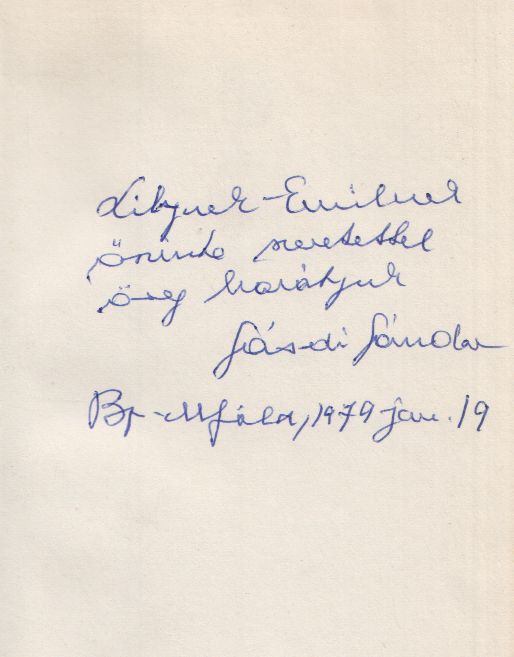 Lilynek-Emilnek
őszinte szeretettel
öreg barátjuk
Sásdi Sándor
Bp-Ujfalu, 1979 jan. 19